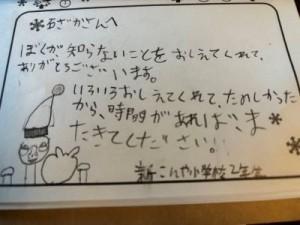 石ざかさんへ
ぼくが知らないことをおしえてくれて、
ありがとうございます。
いろいろおしえてくれて、たのしかった
から、時間があれば、ま
たきてください!
小学校2年生